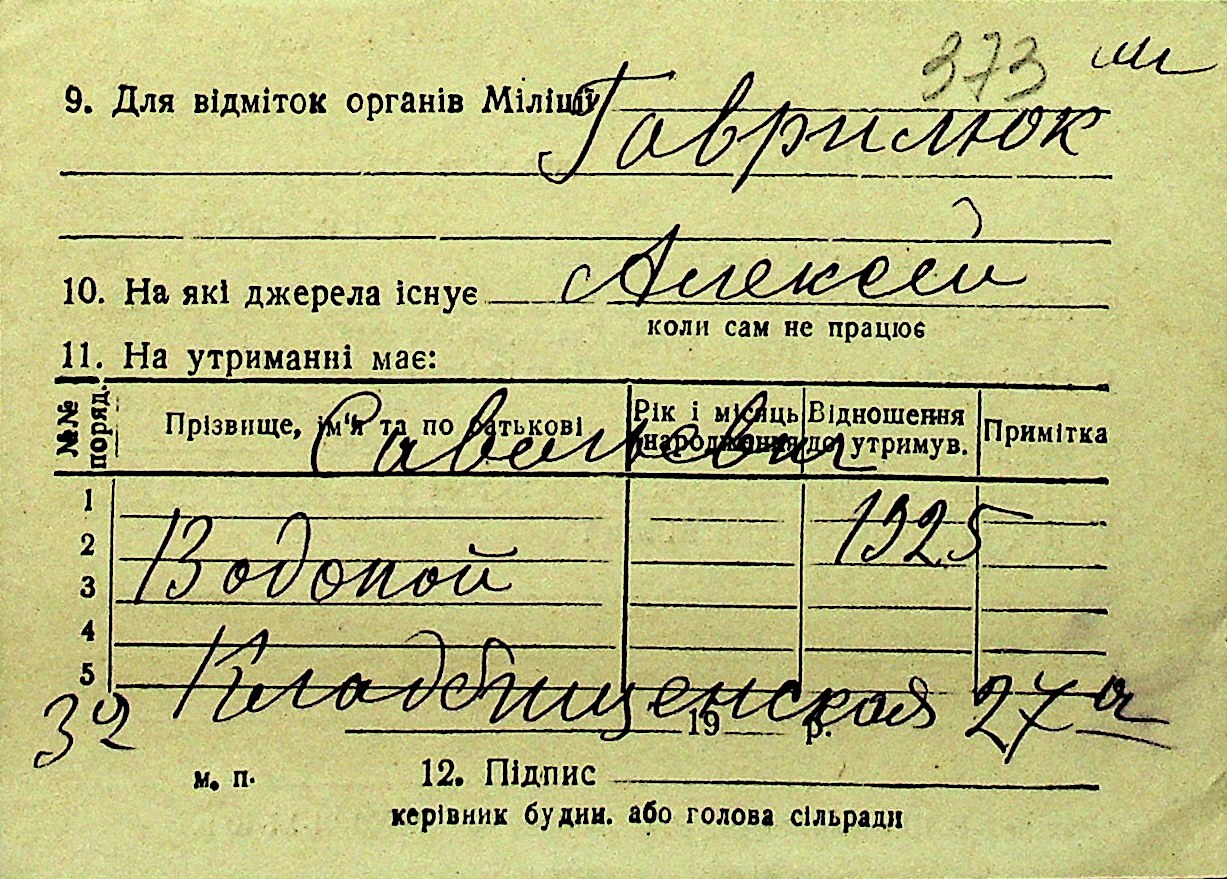 373
9. Для відміток органів Міліції Гаврилюк
10. На які джерела існує Алексей
коли сам не працює
11. На утриманні має:
№№ поряд.
Прізвище, ім'я та по батькові
Рік і місяць народження
Відношення до утримув.
Примітка
Савельевич
1
1925
2
Водопой
3
4
5
32 Кладбищенская 27а
19 р.
м. п. 12. Підпис
керівник будин. або голова сільради